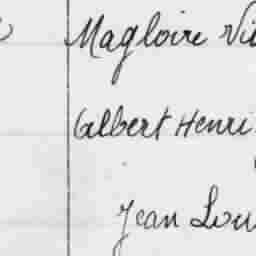 Magloire Vi
Albert Henri
Jean Lou